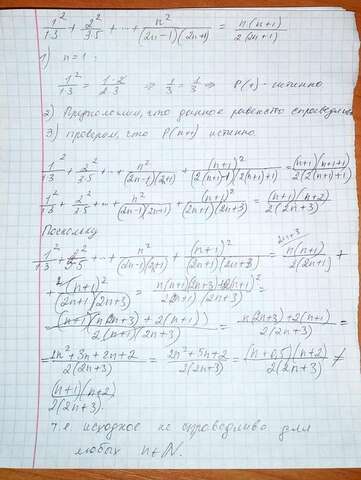 1²/(1·3) + 2²/(3·5) + ... + n²/((2n-1)(2n+1)) = n(n+1)/(2(2n+1))
1) n=1:
1²/(1·3) = (1·2)/(2·3) ⇒ 1/3 = 1/3 ⇒ P(1) - истинно
2) Предположим, что данное равенство справедливо
3) проверим, что P(n+1) истинно
1²/(1·3) + 2²/(3·5) + ... + n²/((2n-1)(2n+1)) + (n+1)²/((2(n+1)-1)(2(n+1)+1)) = (n+1)(n+1+1)/(2(2(n+1)+1))
1²/(1·3) + 2²/(3·5) + ... + n²/((2n-1)(2n+1)) + (n+1)²/((2n+1)(2n+3)) = (n+1)(n+2)/(2(2n+3))
Поскольку
1²/(1·3) + 2²/(3·5) + ... + n²/((2n-1)(2n+1)) + (n+1)²/((2n+1)(2n+3)) = n(n+1)/(2(2n+1)) +
+ (n+1)²/((2n+1)(2n+3)) =
= n(2n+3)+2(n+1)/(2(2n+3)) =
= (2n²+3n+2n+2)/(2(2n+3)) = (2n²+5n+2)/(2(2n+3)) = (n+0,5)(n+2)/(2(2n+3)) ≠
(n+1)(n+2)/(2(2n+3)).
т.е. исходное не справедливо для
любых n∈N.